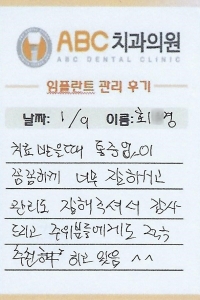 ABC 치과의원
ABC DENTAL CLINIC
임플란트 관리 후기
날짜: 1/9 이름: 최 경
치료 받을때 통증없이
꼼꼼하게 너무 잘하시고
관리도 잘해주셔서 감사
드리고 주위분들에게도 적극
추천해 하고 있음 ^^